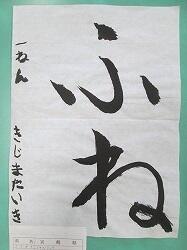 ふね
一ねん
きじまたいき